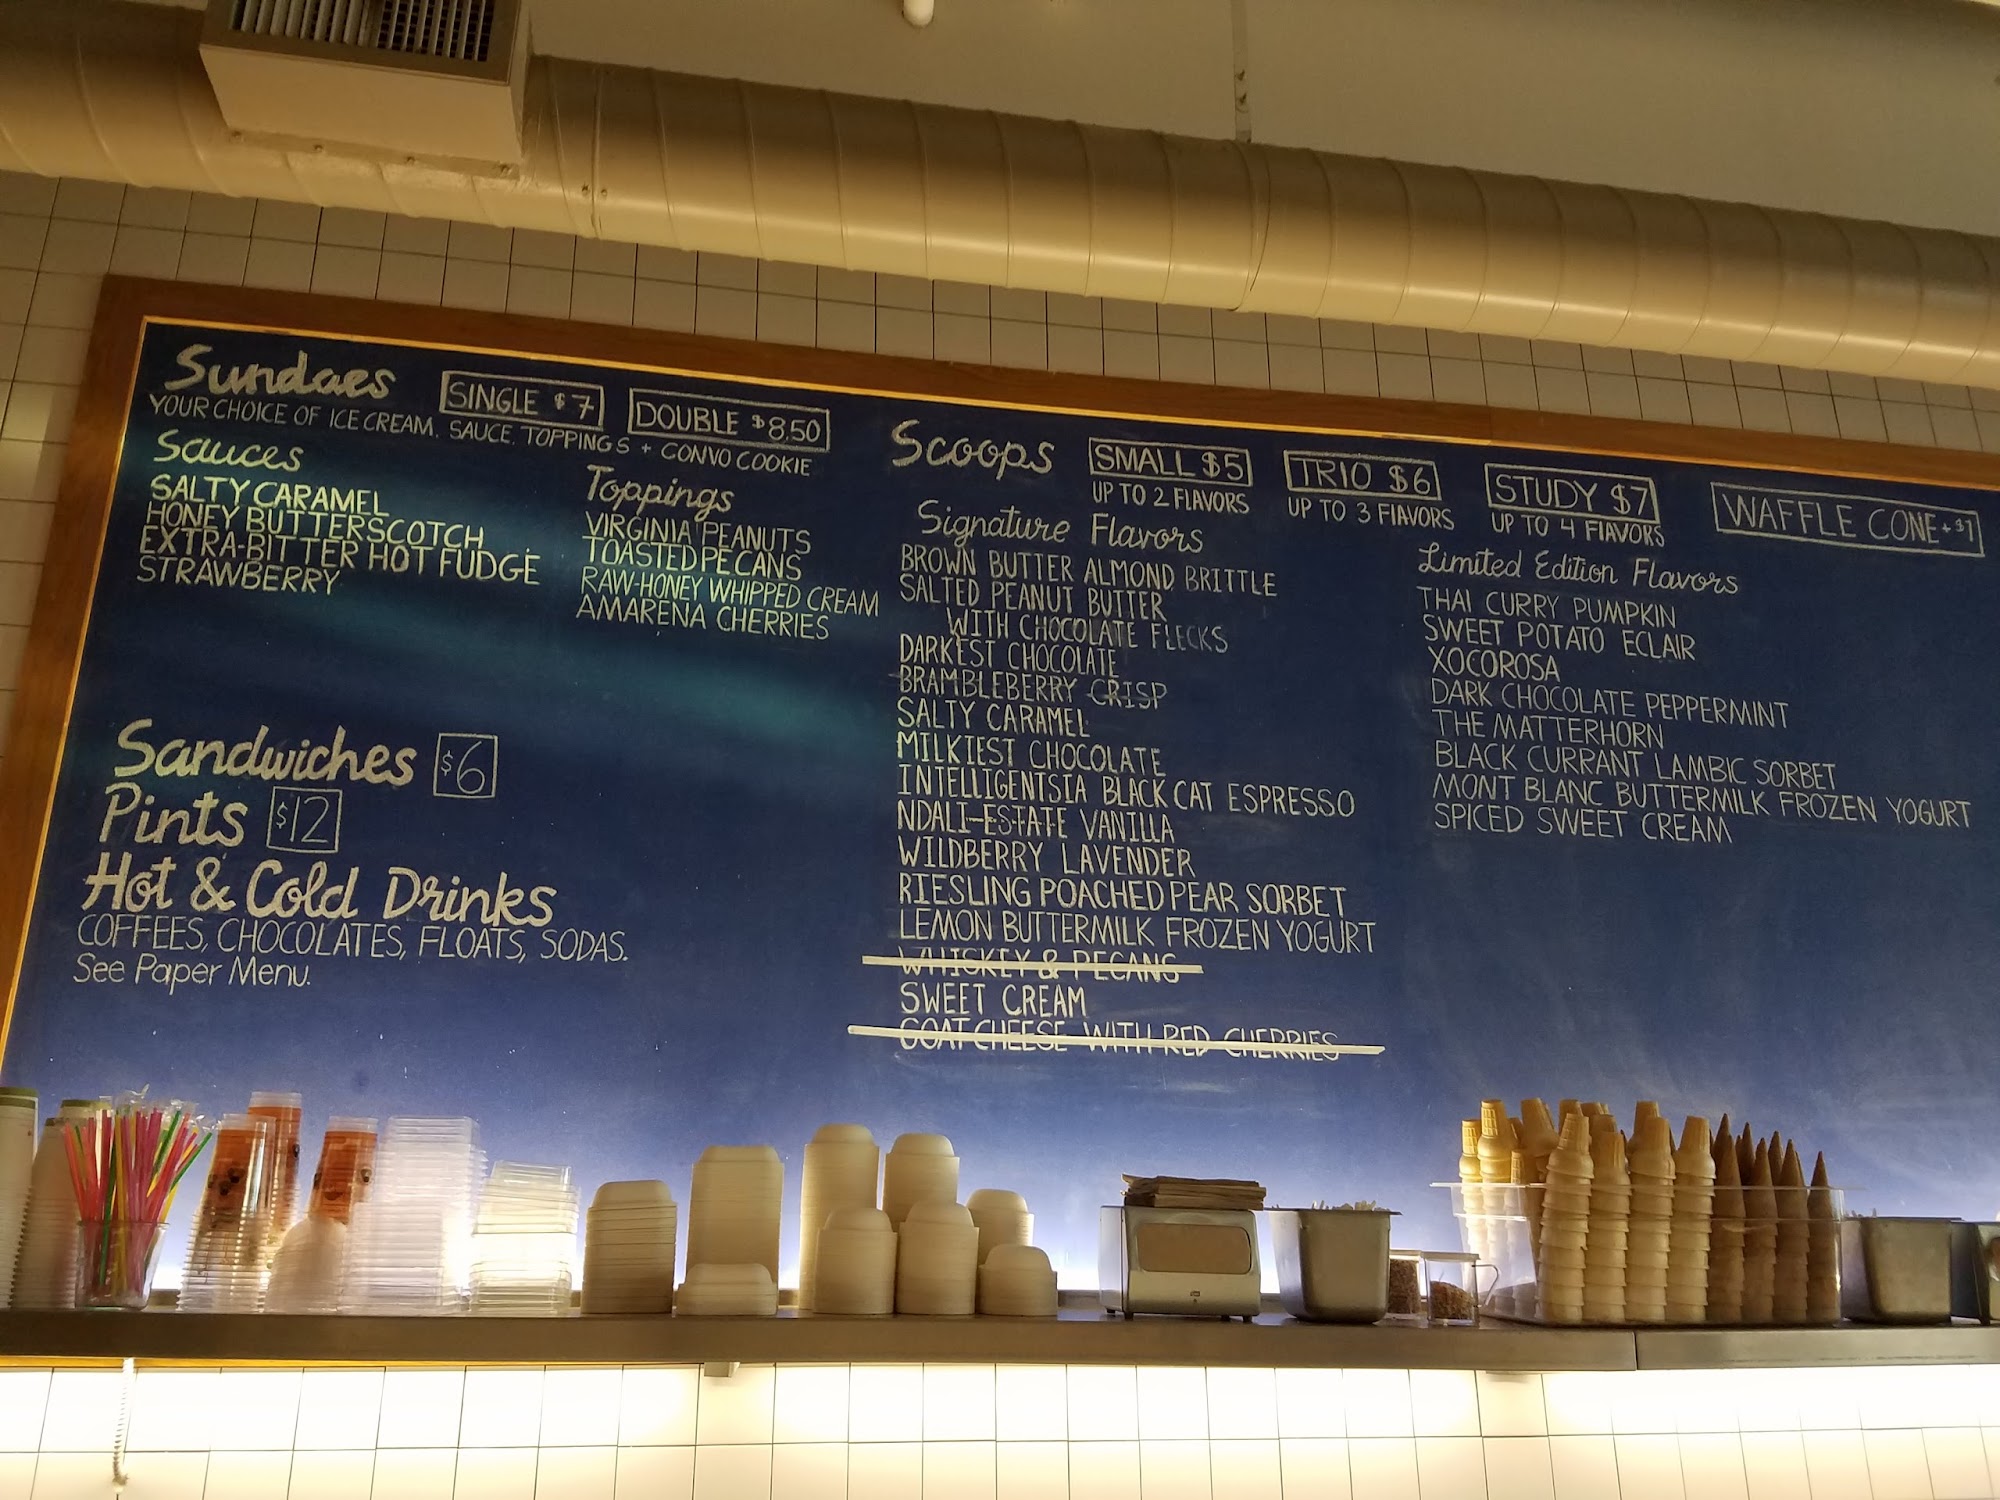 Sundaes
SINGLE $7
DOUBLE $8.50
YOUR CHOICE OF ICE CREAM, SAUCE, TOPPINGS + CONVO COOKIE
Sauces
SALTY CARAMEL
HONEY BUTTERSCOTCH
EXTRA-BITTER HOT FUDGE
STRAWBERRY
Toppings
VIRGINIA PEANUTS
TOASTED PECANS
RAW-HONEY WHIPPED CREAM
AMARENA CHERRIES
Sandwiches $6
Pints $12
Hot & Cold Drinks
COFFEES, CHOCOLATES, FLOATS, SODAS.
See Paper Menu.
Scoops
SMALL $5
UP TO 2 FLAVORS
TRIO $6
UP TO 3 FLAVORS
STUDY $7
UP TO 4 FLAVORS
WAFFLE CONE + $1
Signature Flavors
BROWN BUTTER ALMOND BRITTLE
SALTED PEANUT BUTTER
WITH CHOCOLATE FLECKS
DARKEST CHOCOLATE
BRAMBLEBERRY CRISP
SALTY CARAMEL
MILKIEST CHOCOLATE
INTELLIGENTSIA BLACK CAT ESPRESSO
NDALI-ESTATE VANILLA
WILDBERRY LAVENDER
RIESLING POACHED PEAR SORBET
LEMON BUTTERMILK FROZEN YOGURT
WHISKEY & PECANS
SWEET CREAM
GOAT CHEESE WITH RED CHERRIES
Limited Edition Flavors
THAI CURRY PUMPKIN
SWEET POTATO ECLAIR
XOCOROSA
DARK CHOCOLATE PEPPERMINT
THE MATTERHORN
BLACK CURRANT LAMBIC SORBET
MONT BLANC BUTTERMILK FROZEN YOGURT
SPICED SWEET CREAM